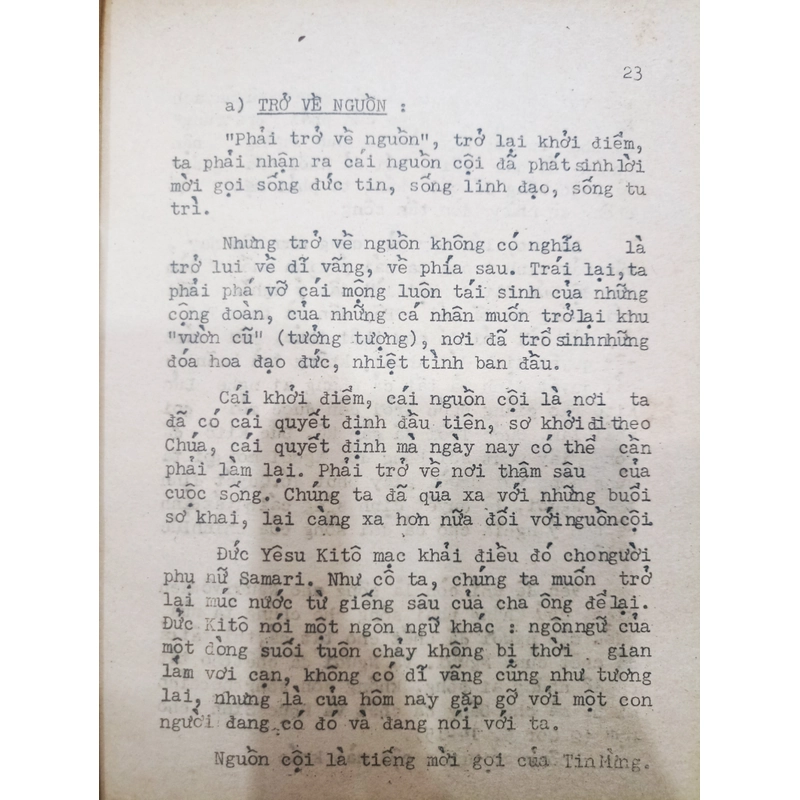 23
a) TRỞ VỀ NGUỒN :
"Phải trở về nguồn", trở lại khởi điểm,
ta phải nhận ra cái nguồn cội đã phát sinh lời
mời gọi sống đức tin, sống linh đạo, sống tu
trì.
Nhưng trở về nguồn không có nghĩa là
trở lui về dĩ vãng, về phía sau. Trái lại, ta
phải phá vỡ cái mộng luôn tái sinh của những
cộng đoàn, của những cá nhân muốn trở lại khu
"vườn cũ" (tưởng tượng), nơi đã trổ sinh những
đóa hoa đạo đức, nhiệt tình ban đầu.
Cái khởi điểm, cái nguồn cội là nơi ta
đã có cái quyết định đầu tiên, sơ khởi đi theo
Chúa, cái quyết định mà ngày nay có thể cần
phải làm lại. Phải trở về nơi thâm sâu của
cuộc sống. Chúng ta đã qúa xa với những buổi
sơ khai, lại càng xa hơn nữa đối với nguồn cội.
Đức Yêsu Kitô mạc khải điều đó cho người
phụ nữ Samari. Như cô ta, chúng ta muốn trở
lại múc nước từ giếng sâu của cha ông để lại.
Đức Kitô nói một ngôn ngữ khác : ngôn ngữ của
một dòng suối tuôn chảy không bị thời gian
làm vơi cạn, không có dĩ vãng cũng như tương
lai, nhưng là của hôm nay gặp gỡ với một con
người đang có đó và đang nói với ta.
Nguồn cội là tiếng mời gọi của Tin Mừng.